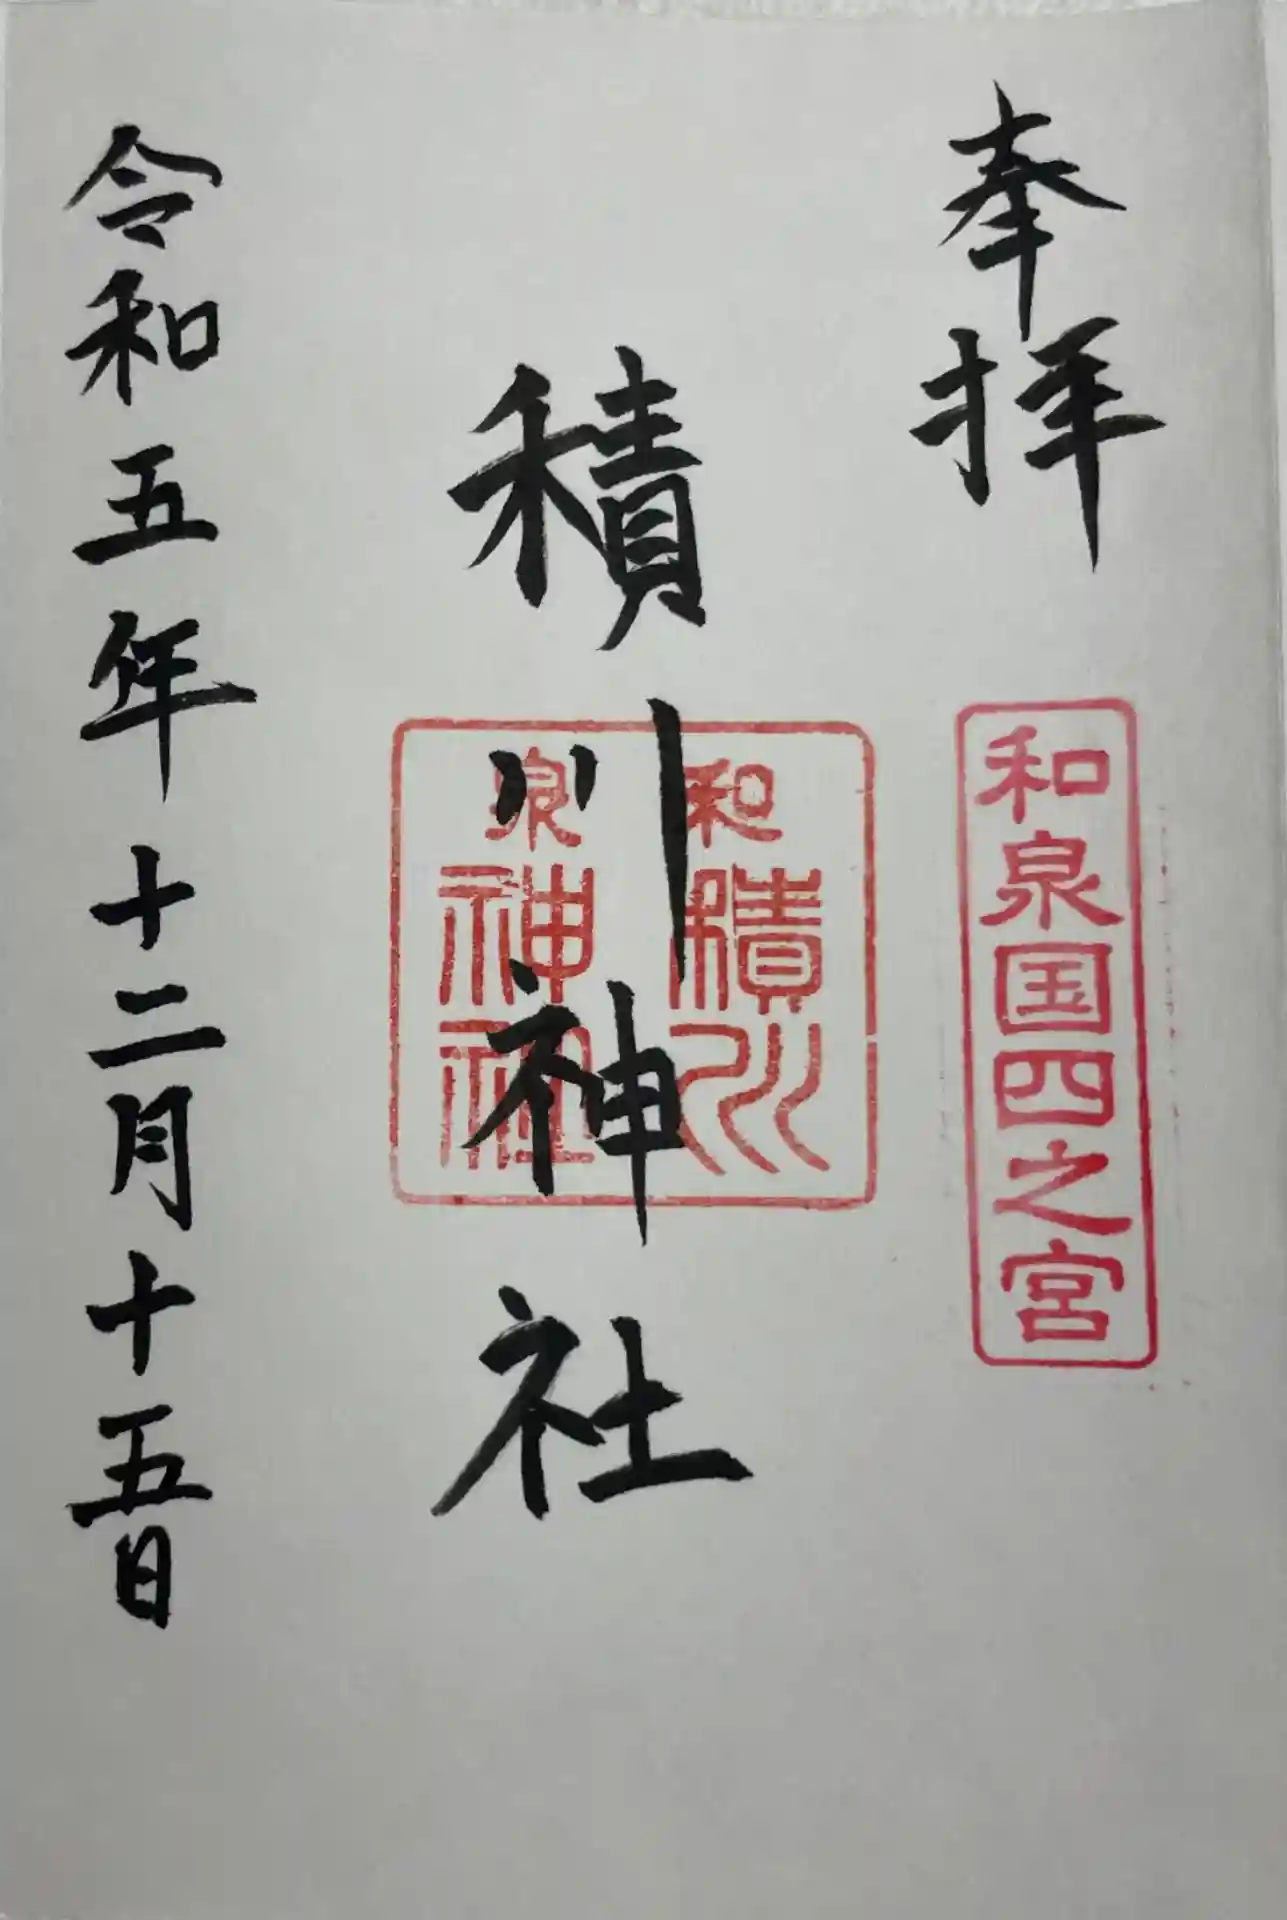 奉拝
和泉国四之宮
積川神社
和泉
積川神社
令和五年十二月十五日